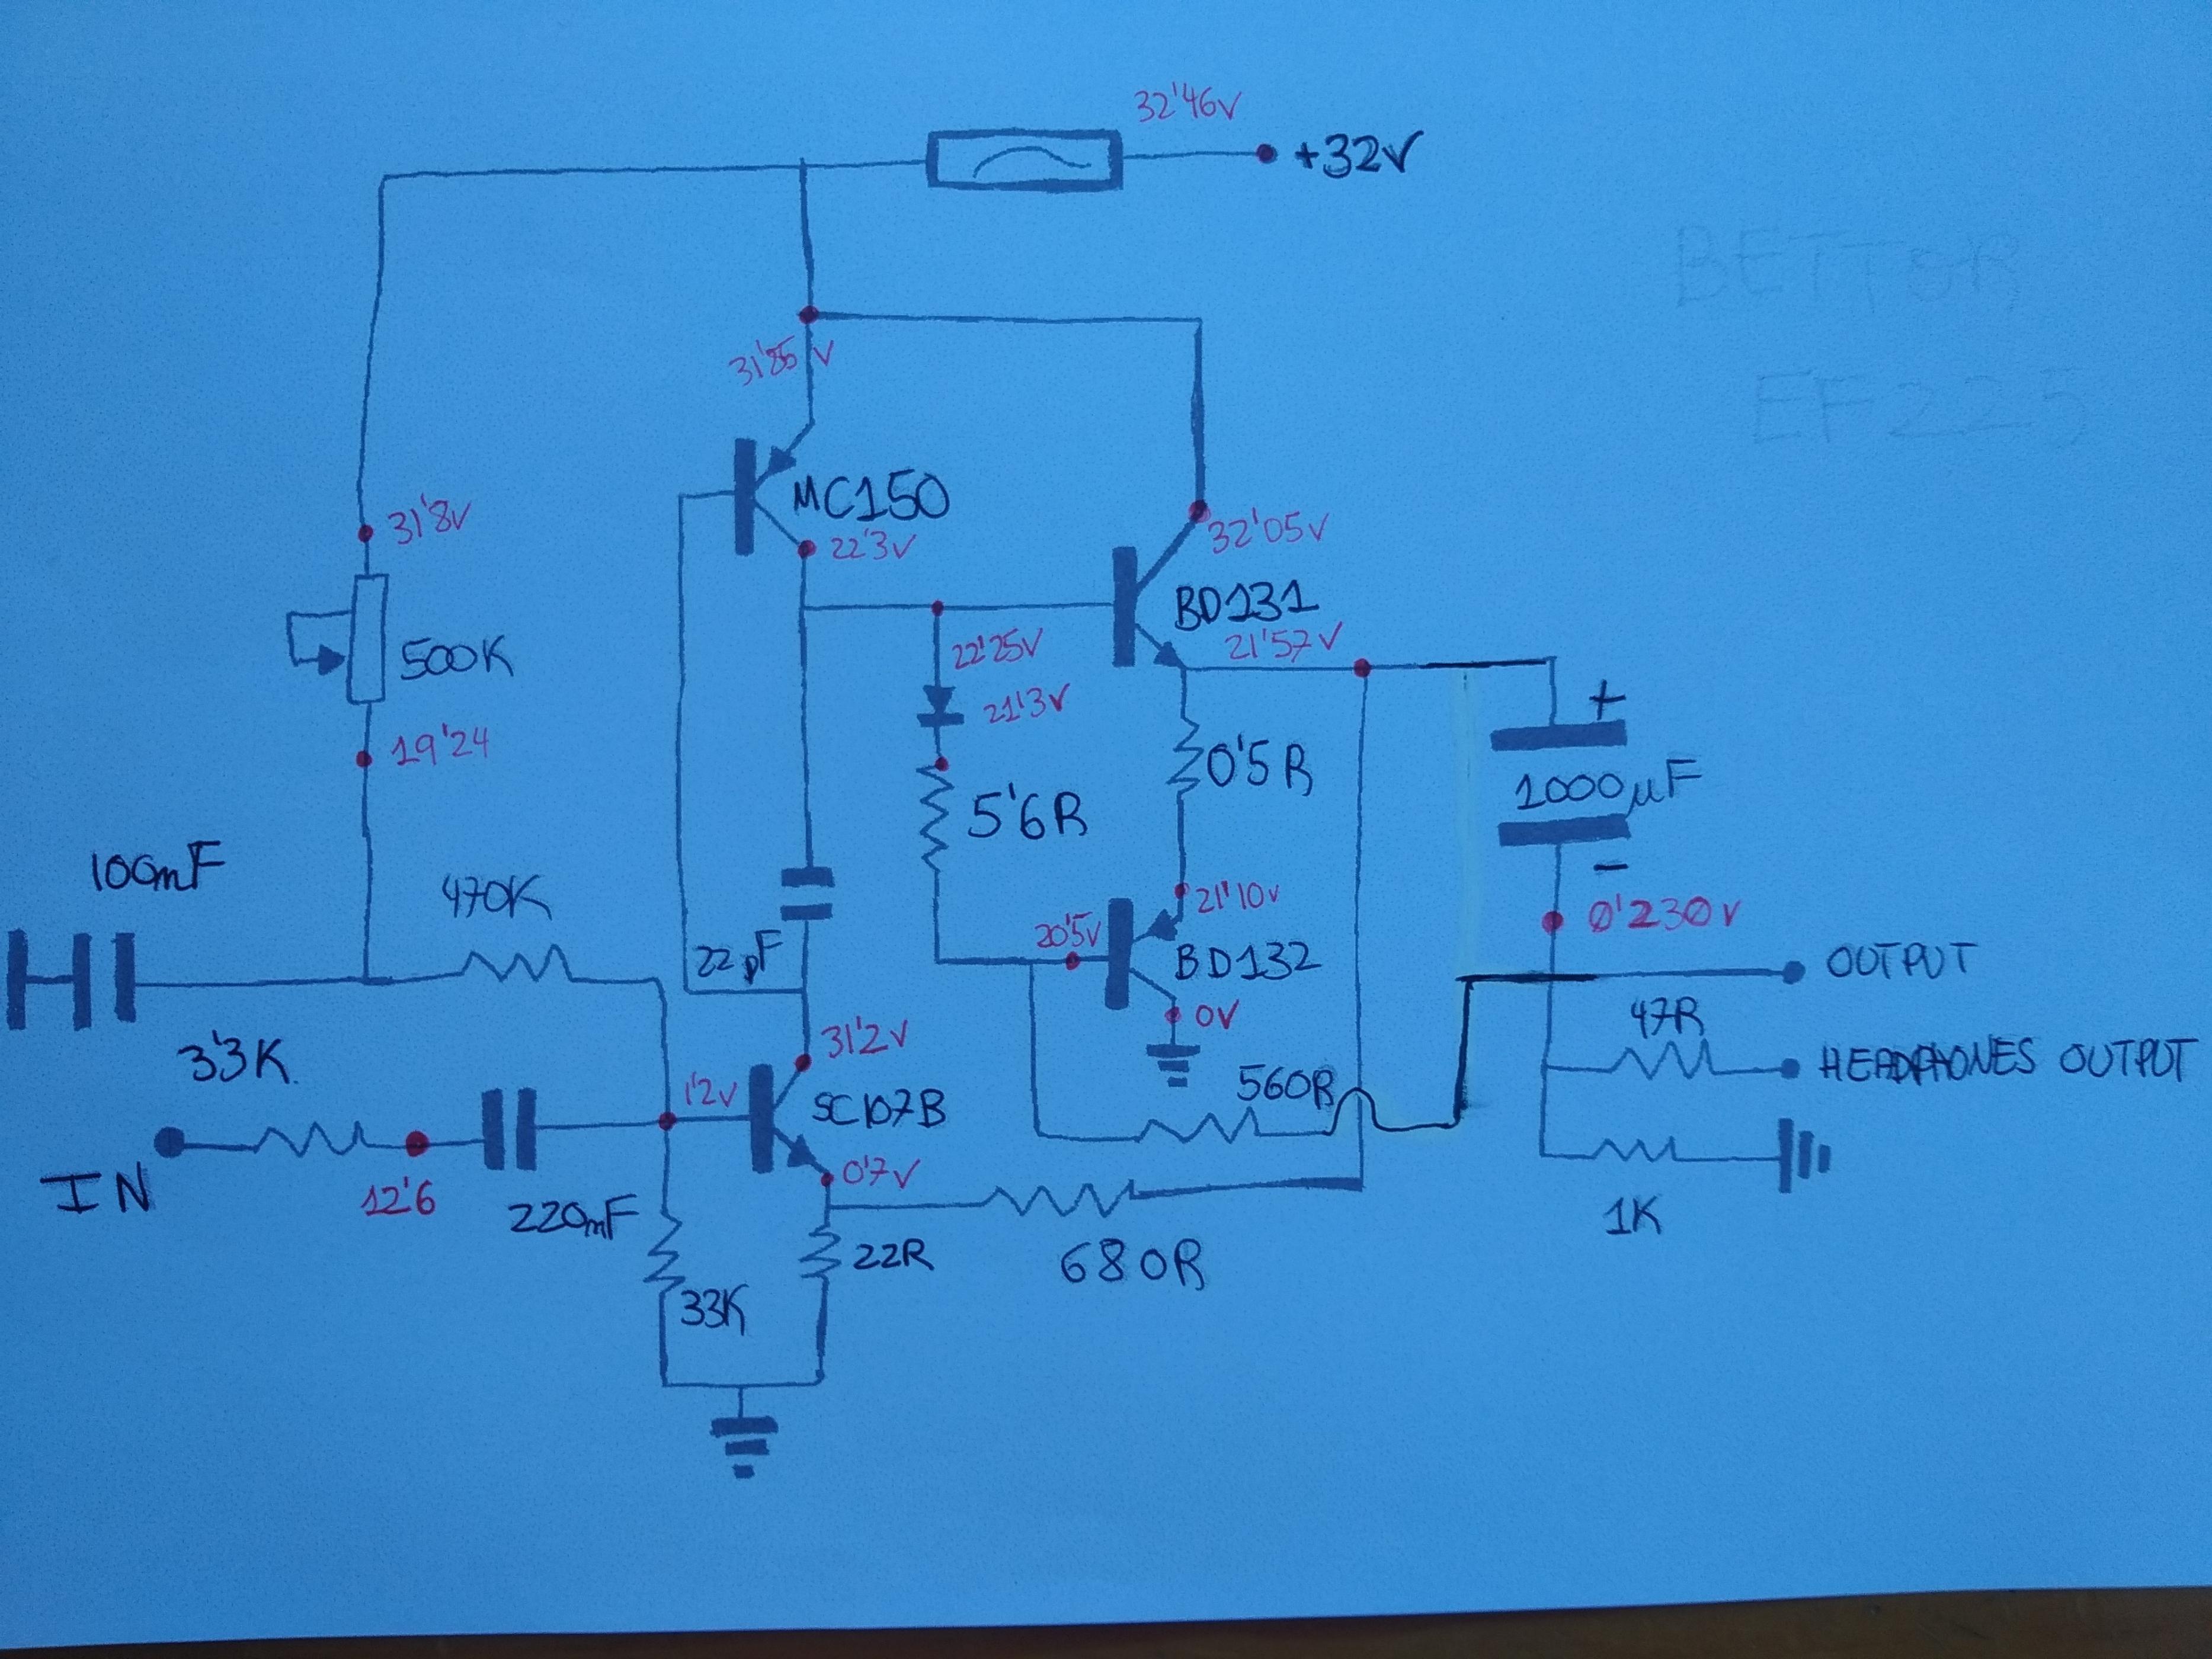 32'46V
+32V
BETTOR
EF225
31'85 V
MC150
22'3V
31'8V
32'05V
BD131
21'57V
500K
22'25V
21'3V
19'24
+
0'5R
5'6R
1000µF
-
100mF
470K
21'10V
0'230V
20'5V
22pF
BD132
OUTPUT
0V
47R
3'3K
31'2V
HEADPHONES OUTPUT
1'2V
560R
SC107B
0'7V
IN
12'6
220mF
1K
22R
680R
33K